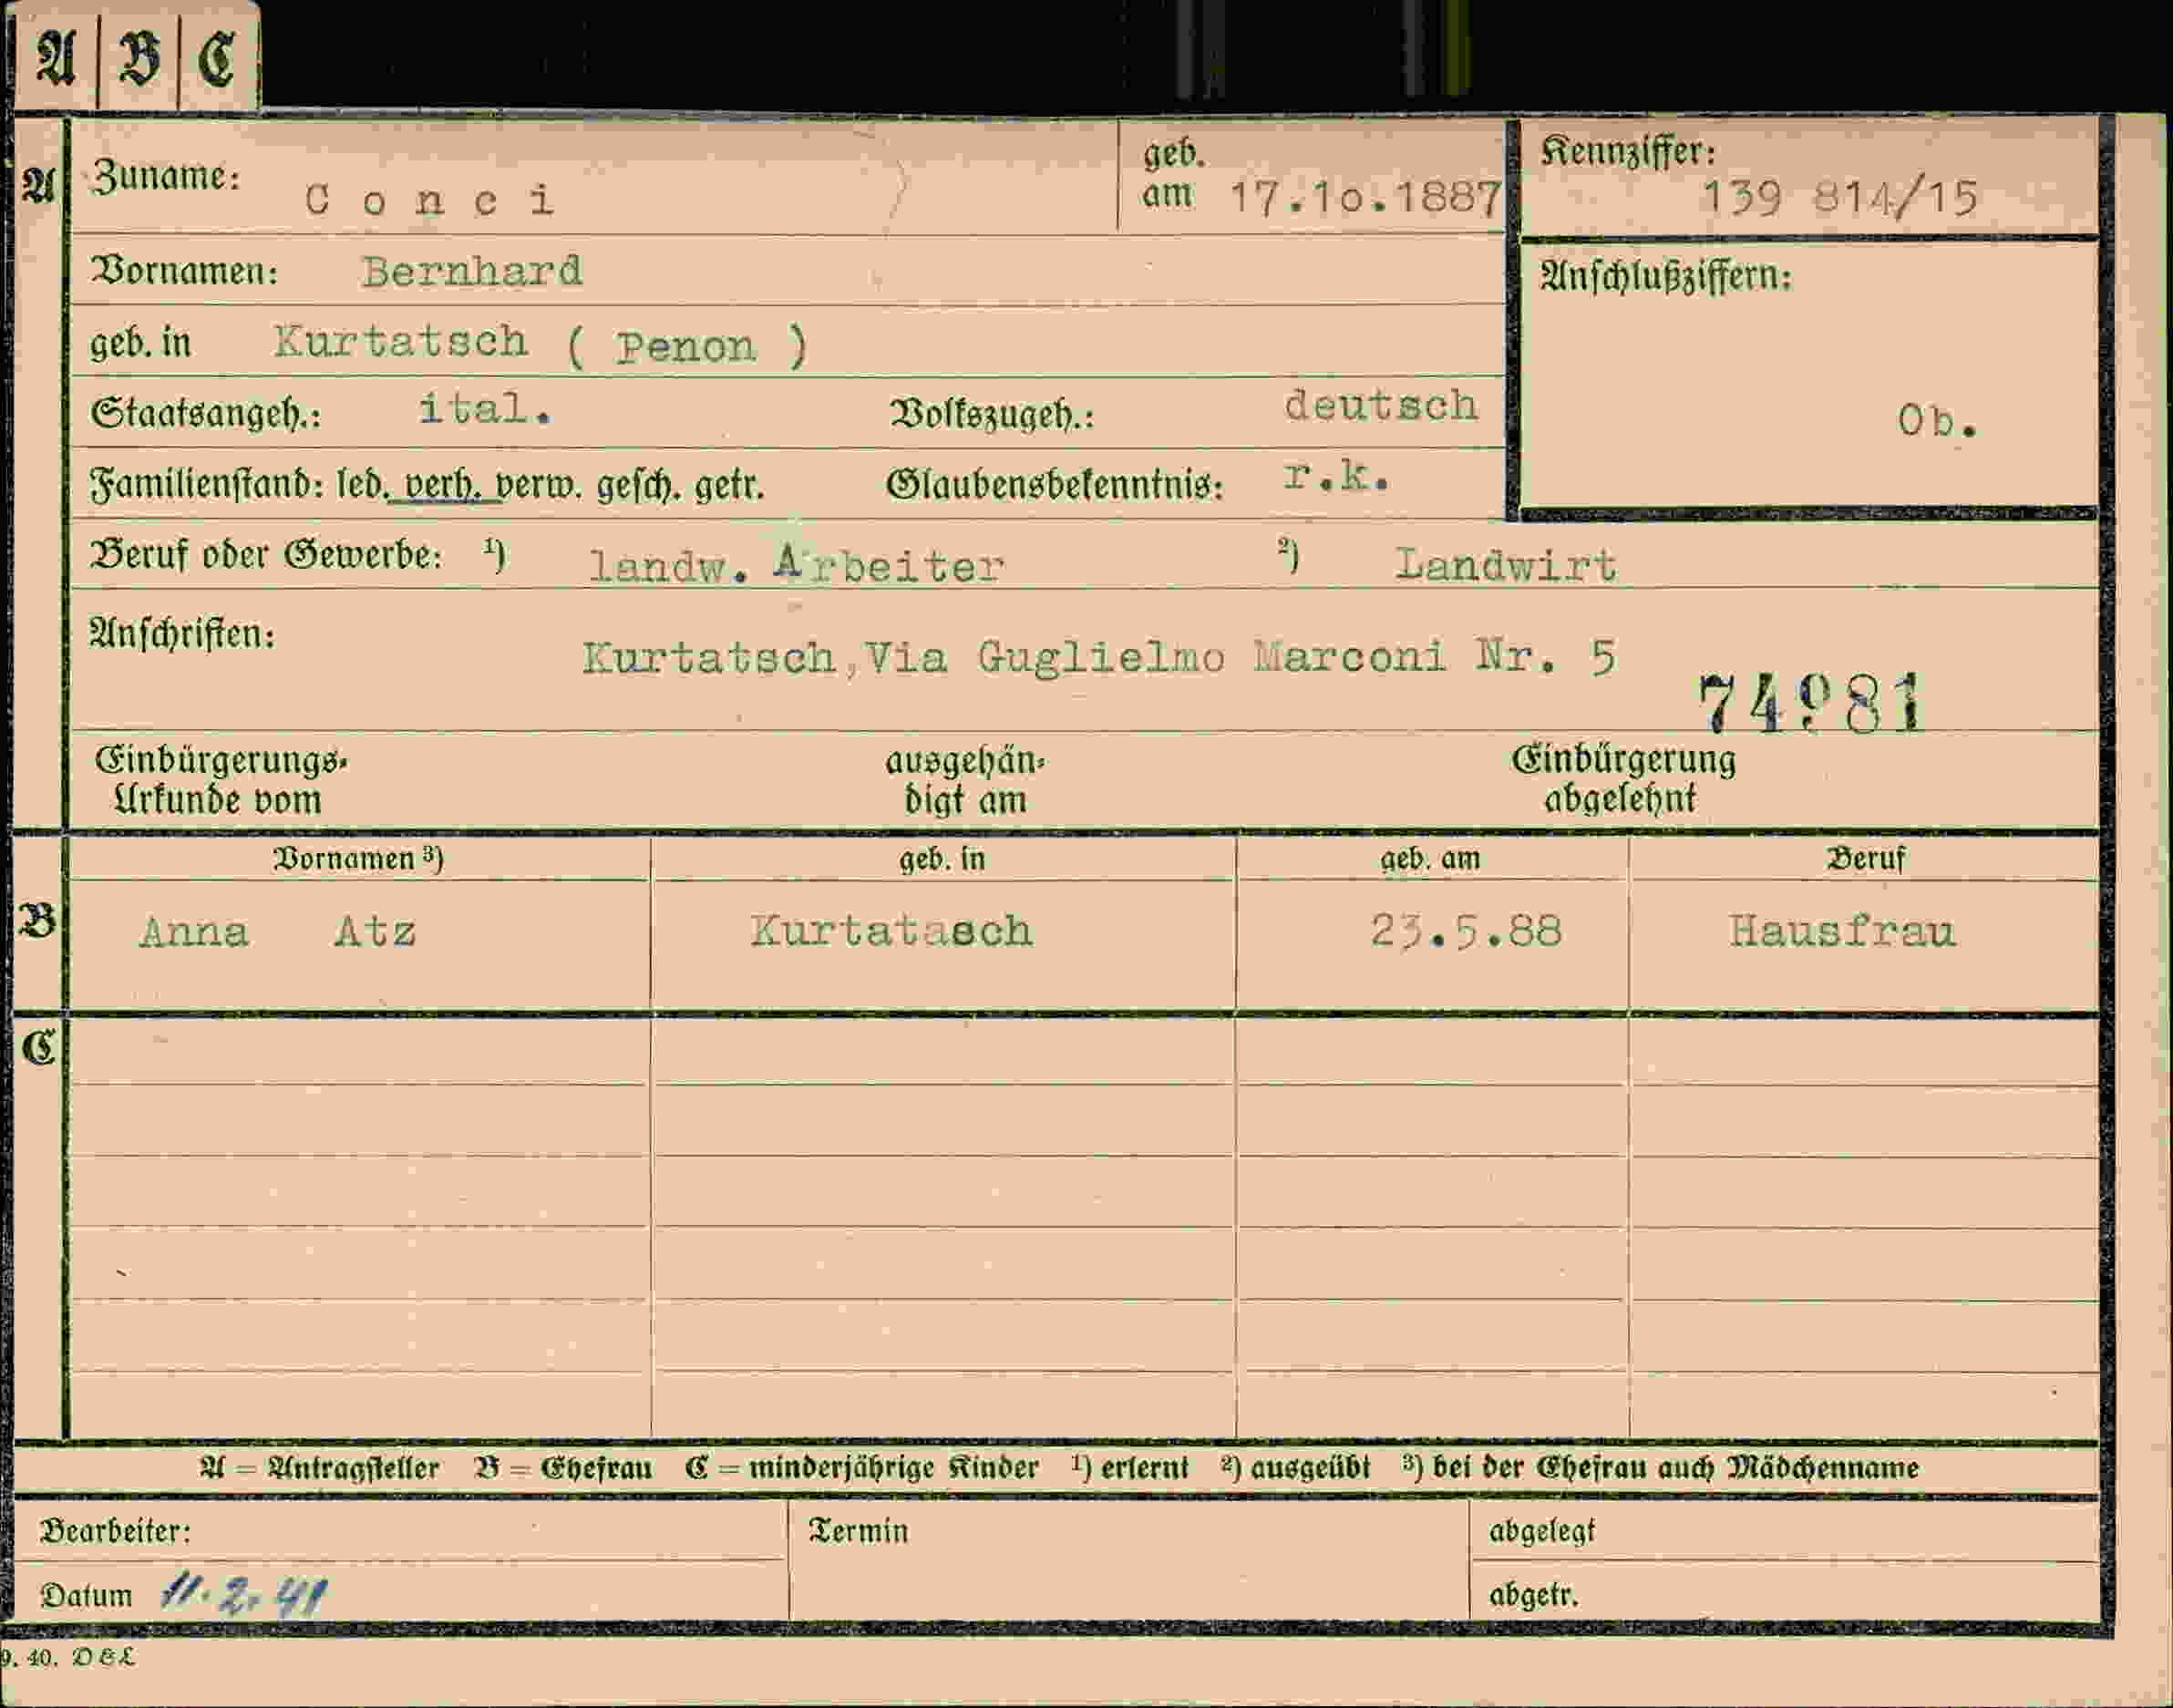 A B C
A Zuname: Conci geb. am 17.10.1887 Kennziffer: 139 814/15
Vornamen: Bernhard
Anschlußziffern:
geb. in Kurtatsch ( Penon )
Staatsangeh.: ital. Volkszugeh.: deutsch
Ob.
Familienstand: led. verh. verw. gesch. getr. Glaubensbekenntnis: r.k.
Beruf oder Gewerbe: ¹) landw. Arbeiter ²) Landwirt
Anschriften: Kurtatsch, Via Guglielmo Marconi Nr. 5
74981
Einbürgerungs-Urkunde vom ausgehän-digt am Einbürgerung abgelehnt
Vornamen ³) geb. in geb. am Beruf
B Anna Atz Kurtatasch 23.5.88 Hausfrau
C
A = Antragsteller B = Ehefrau C = minderjährige Kinder ¹) erlernt ²) ausgeübt ³) bei der Ehefrau auch Mädchenname
Bearbeiter: Termin abgelegt
Datum 11.2.41 abgetr.
9. 40. D&L